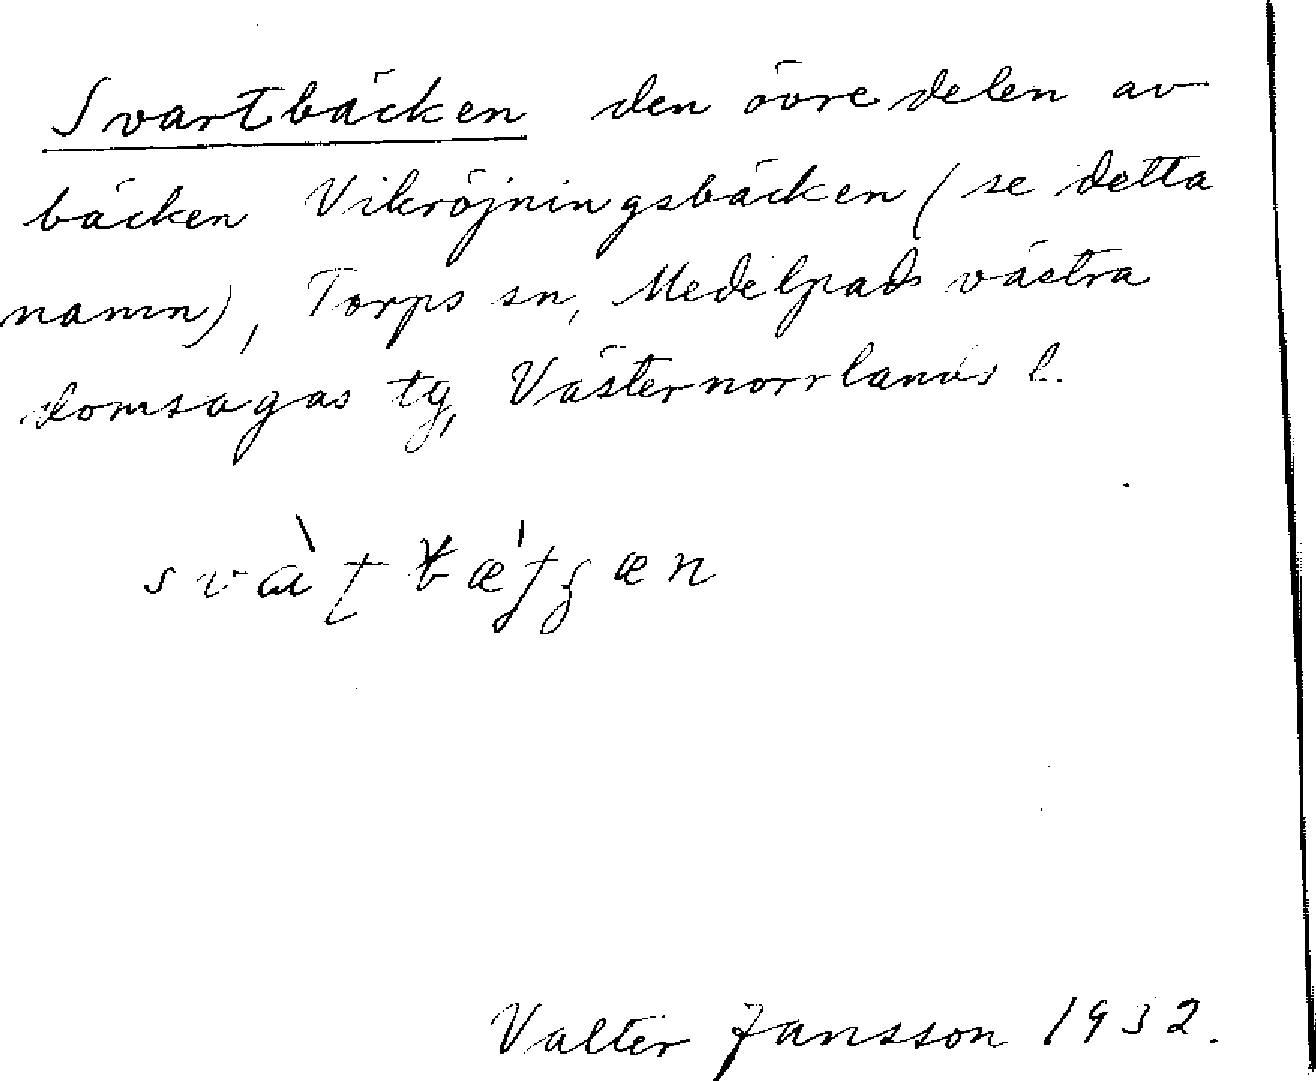 Svartbäcken den övre delen av
bäcken Vikröjningsbäcken (se detta
namn), Torps sn, Medelpads västra
domsagas tg, Västernorrlands l.
Valter Jansson 1932.